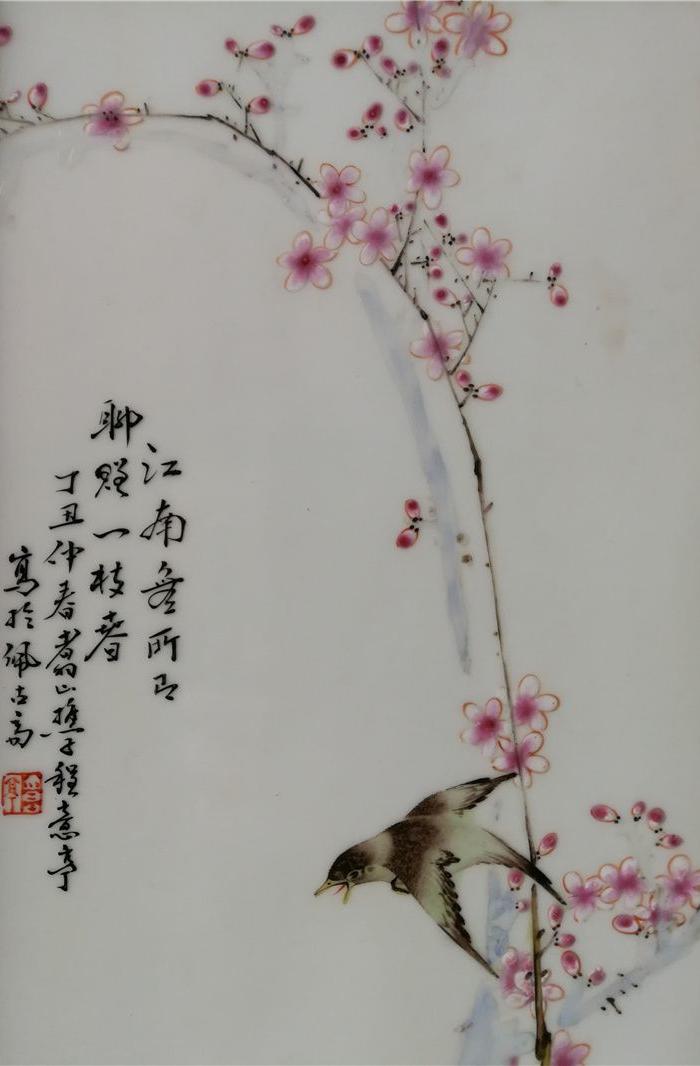 江南無所有
聊贈一枝春
丁丑仲春翥山樵子程意亭
寫於佩古齋